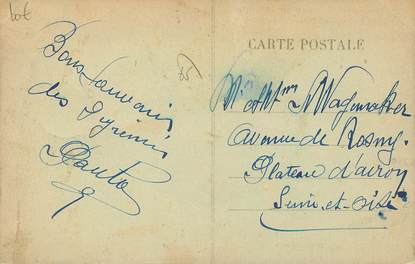 10€
Bons Souvenirs
des Pyrénées
CARTE POSTALE
M et Mme Wagemaker
Avenue de Rosny.
Plateau d'avron
Seine-et-Oise